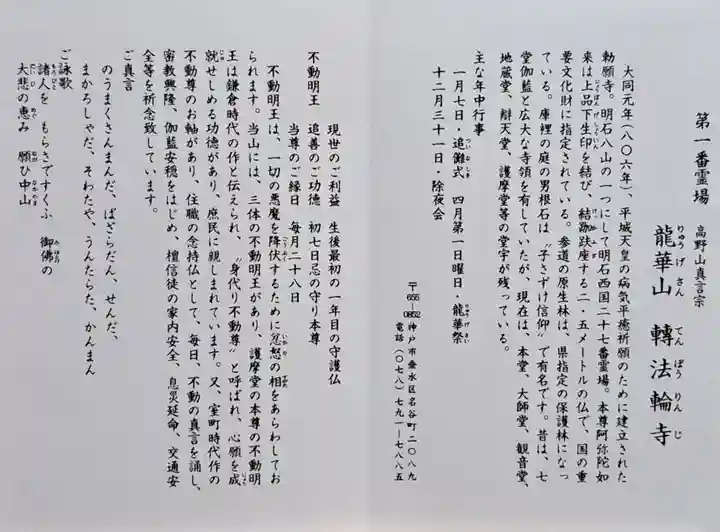 第一番霊場　高野山真言宗
龍華山　轉法輪寺
りゅうげさん　てんぽうりんじ
大同元年(八〇六年)、平城天皇の病気平癒祈願のために建立された
勅願寺。明石八山の一つにして明石西国二十七番霊場。本尊阿弥陀如
来は上品下生印を結び、結跏趺座する二・五メートルの仏で、国の重
要文化財に指定されている。参道の原生林は、県指定の保護林になっ
ている。庫裡の庭の男根石は〝子さずけ信仰〟で有名です。昔は、七
堂伽藍と広大な寺領を有していたが、現在は、本堂、大師堂、観音堂、
地蔵堂、辯天堂、護摩堂等の堂宇が残っている。
主な年中行事
一月七日・追儺式　四月第一日曜日・龍華祭
十二月三十一日・除夜会
〒655-0852　神戸市垂水区名谷町二〇八九
電話(〇七八)七九一-七八八五
現世のご利益　生後最初の一年目の守護仏
不動明王　追善のご功徳　初七日忌の守り本尊
当尊のご縁日　毎月二十八日
不動明王は、一切の悪魔を降伏するために忿怒の相をあらわしてお
られます。当山には、三体の不動明王があり、護摩堂の本尊の不動明
王は鎌倉時代の作と伝えられ、〝身代り不動尊〟と呼ばれ、心願を成
就せしめる功徳があり、庶民に親しまれています。又、室町時代作の
不動尊のお軸があり、住職の念持仏として、毎日、不動の真言を誦し、
密教興隆、伽藍安穏をはじめ、檀信徒の家内安全、息災延命、交通安
全等を祈念致しています。
ご真言
のうまくさんまんだ、ばざらだん、せんだ、
まかろしゃだ、そわたや、うんたらた、かんまん
ご詠歌
諸人を　もらさですくふ　御佛の
大悲の恵み　願ひ中山